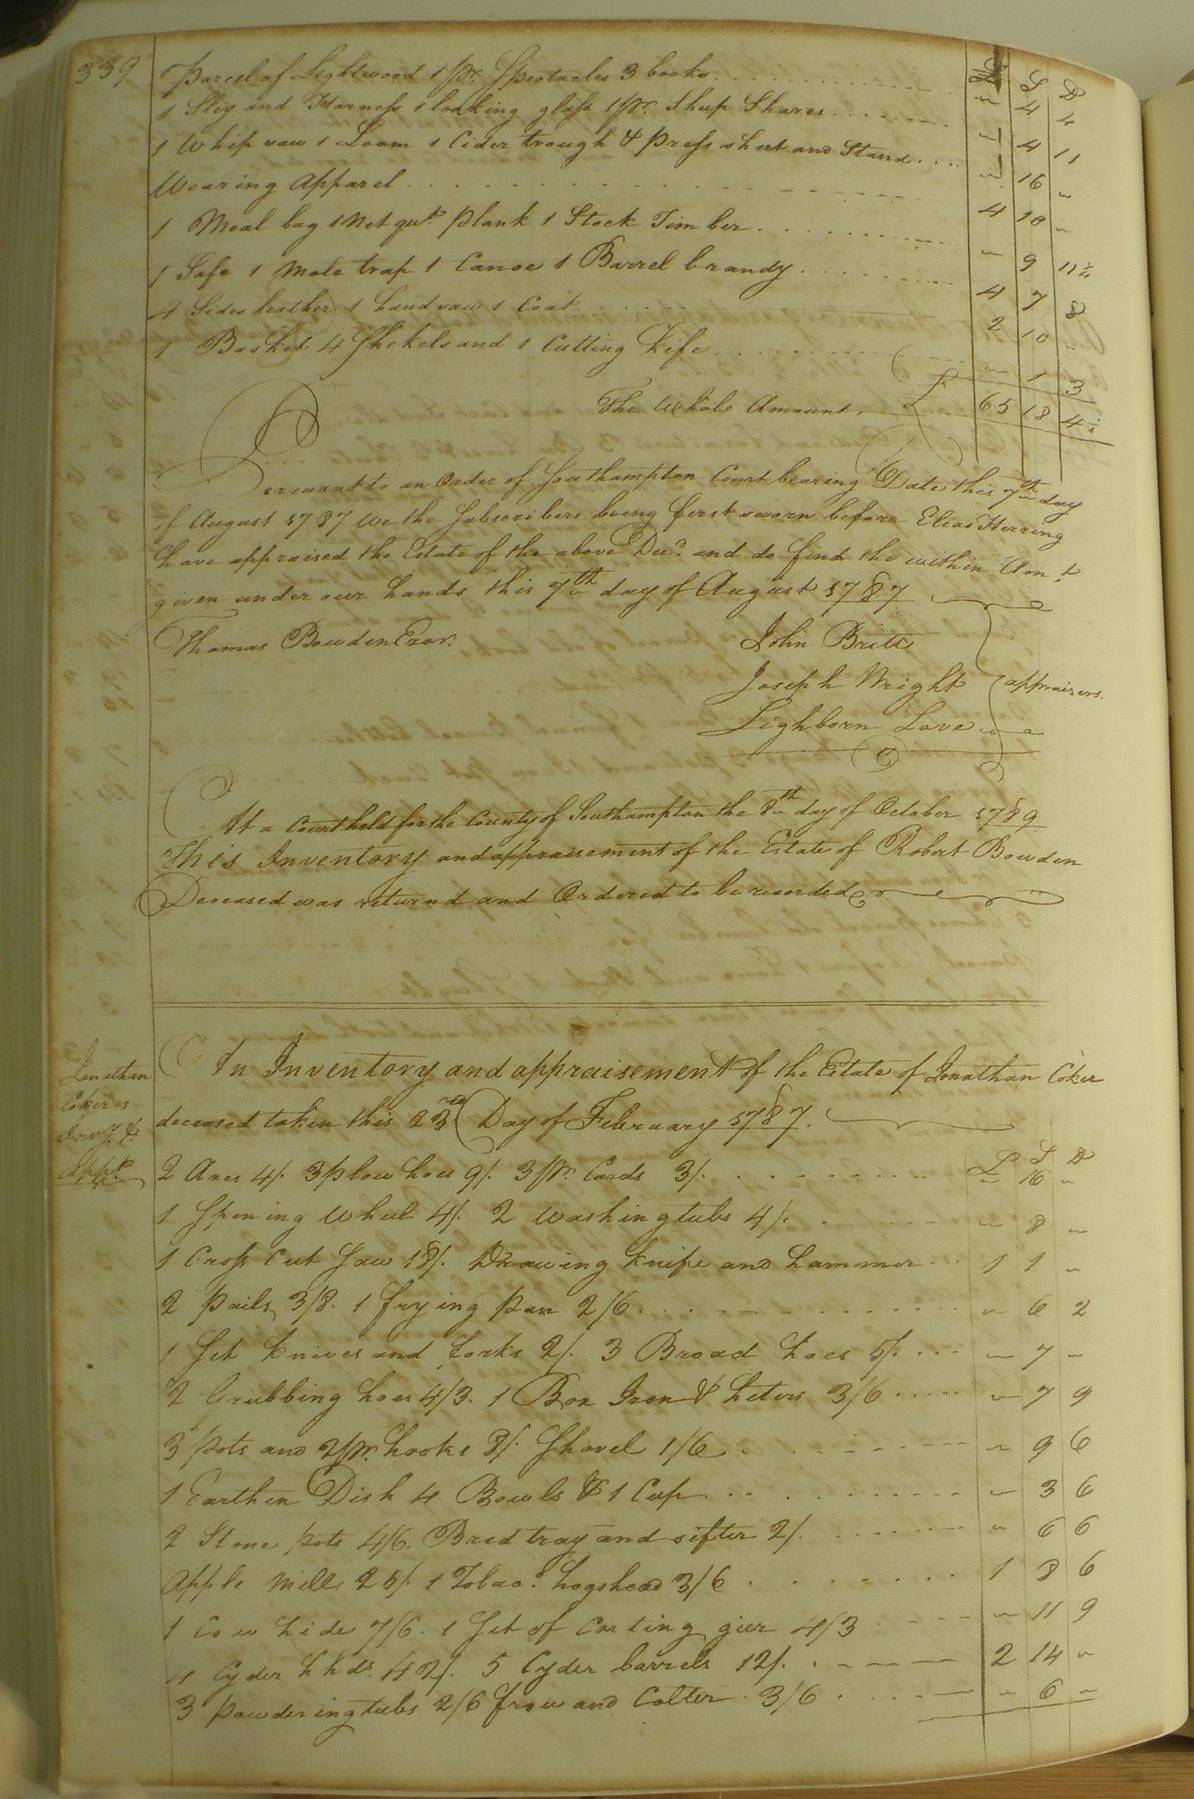 339
£ S D
Parcel of Lightwood 1 pr. Spectacles 3 books . . . . " 4 4
1 Sley and Harness 1 looking glass 1 pr. Sheep Shares . . . . " 4 11
1 Whip saw 1 Loom 1 Cider trough & press sheet and Stand . . . " 16 "
Wearing Apparel . . . . 4 10 "
1 Meal bag 1 Net qut. plank 1 Stock Timber . . . . " 9 11¼
1 Safe 1 Mole trap 1 Canoe 1 Barrel brandy . . . . 4 7 8
4 Sides leather 1 handsaw 1 Coat . . . . 2 10 "
1 Basket 4 Shekels and 1 Cutting Kife . . . . " 1 3
The Whole Amount. £ 65 18 4½
Persuant to an Order of Southampton Court bearing Date this 7th day
of August 1787 we the Subscribers being first sworn before Elias Herring
have appraised the Estate of the above Decd. and do find the within Amt.
given under our hands this 7th day of August 1787
Thomas Bowden Exor. John Britt
Joseph Wright appraisers.
Lighborn Lowe
At a Court held for the County of Southampton the 8th day of October 1789
This Inventory and appraisement of the Estate of Robert Bowden
Deceased was returnd and Ordered to be recorded
Jonathan
Coker's
Invy. &
Appt.
An Inventory and appraisement of the Estate of Jonathan Coker
deceased taken this 23rd Day of February 1787.
£ S D
2 Axes 4/. 3 plow hoes 9/. 3 pr. Cards 3/. . . . " 16 "
1 Spening Wheel 4/. 2 Washingtubs 4/. . . . " 8 "
1 Cross Cut Saw 18/. Drawing Knife and hammer . . . 1 1 "
2 Pails 3/8. 1 frying Pan 2/6 . . . " 6 2
1 Set Knives and forks 2/. 3 Broad hoes 5/. . . . " 7 "
2 Grubbing hoes 4/3. 1 Box Iron & heters 3/6 . . . . " 7 9
3 Pots and 2 pr. hooks 8/. Shovel 1/6 . . . " 9 6
1 Earthen Dish 4 Bowls & 1 Cup . . . " 3 6
2 Stone pots 4/6. Bred tray and sifter 2/. . . . " 6 6
Apple Mill 25/. 1 Tobaco. hogshead 3/6 . . . 1 8 6
1 Cow hide 7/6. 1 Set of Carting gier 4/3 . . . " 11 9
4 Cyder hhds. 42/. 5 Cyder barrels 12/. . . . 2 14 "
3 Powderingtubs 2/6 frow and Colter. 3/6 . . . " 6 "